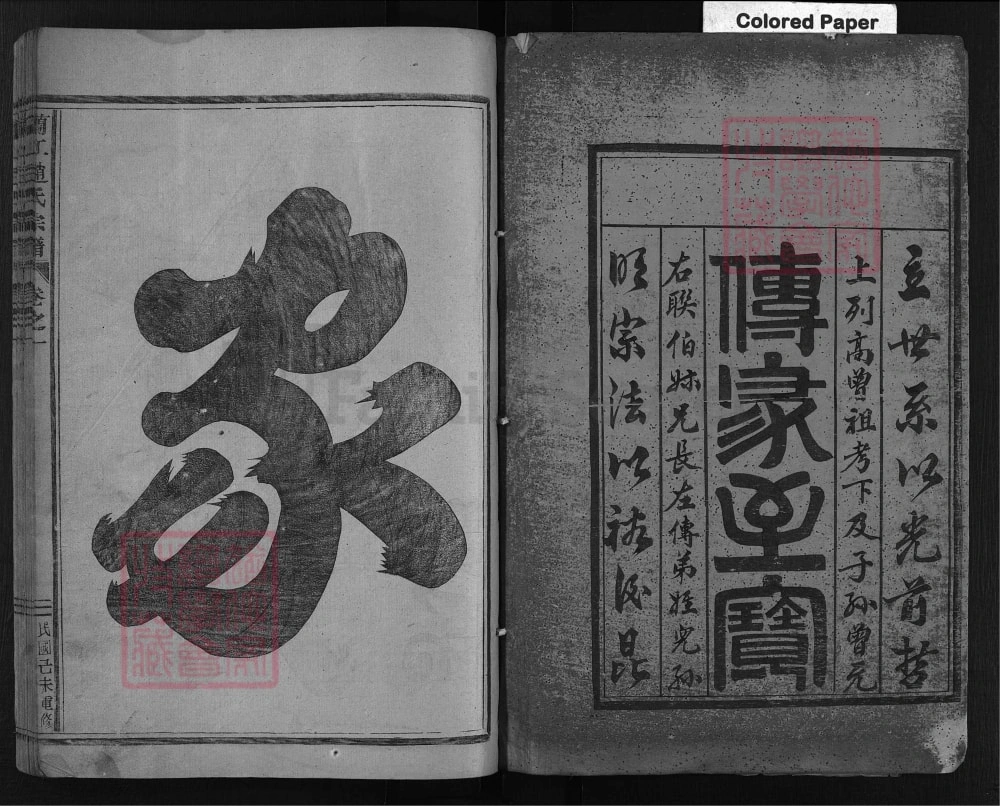 Colored Paper
立世系以光前哲
上列高曾祖考下及子孫曾元
傳家至寶
右聯伯妹兄長左傳弟姪兒孫
明宗法以裕後昆
家
蘭江趙氏宗譜
卷之一
民國己未重修